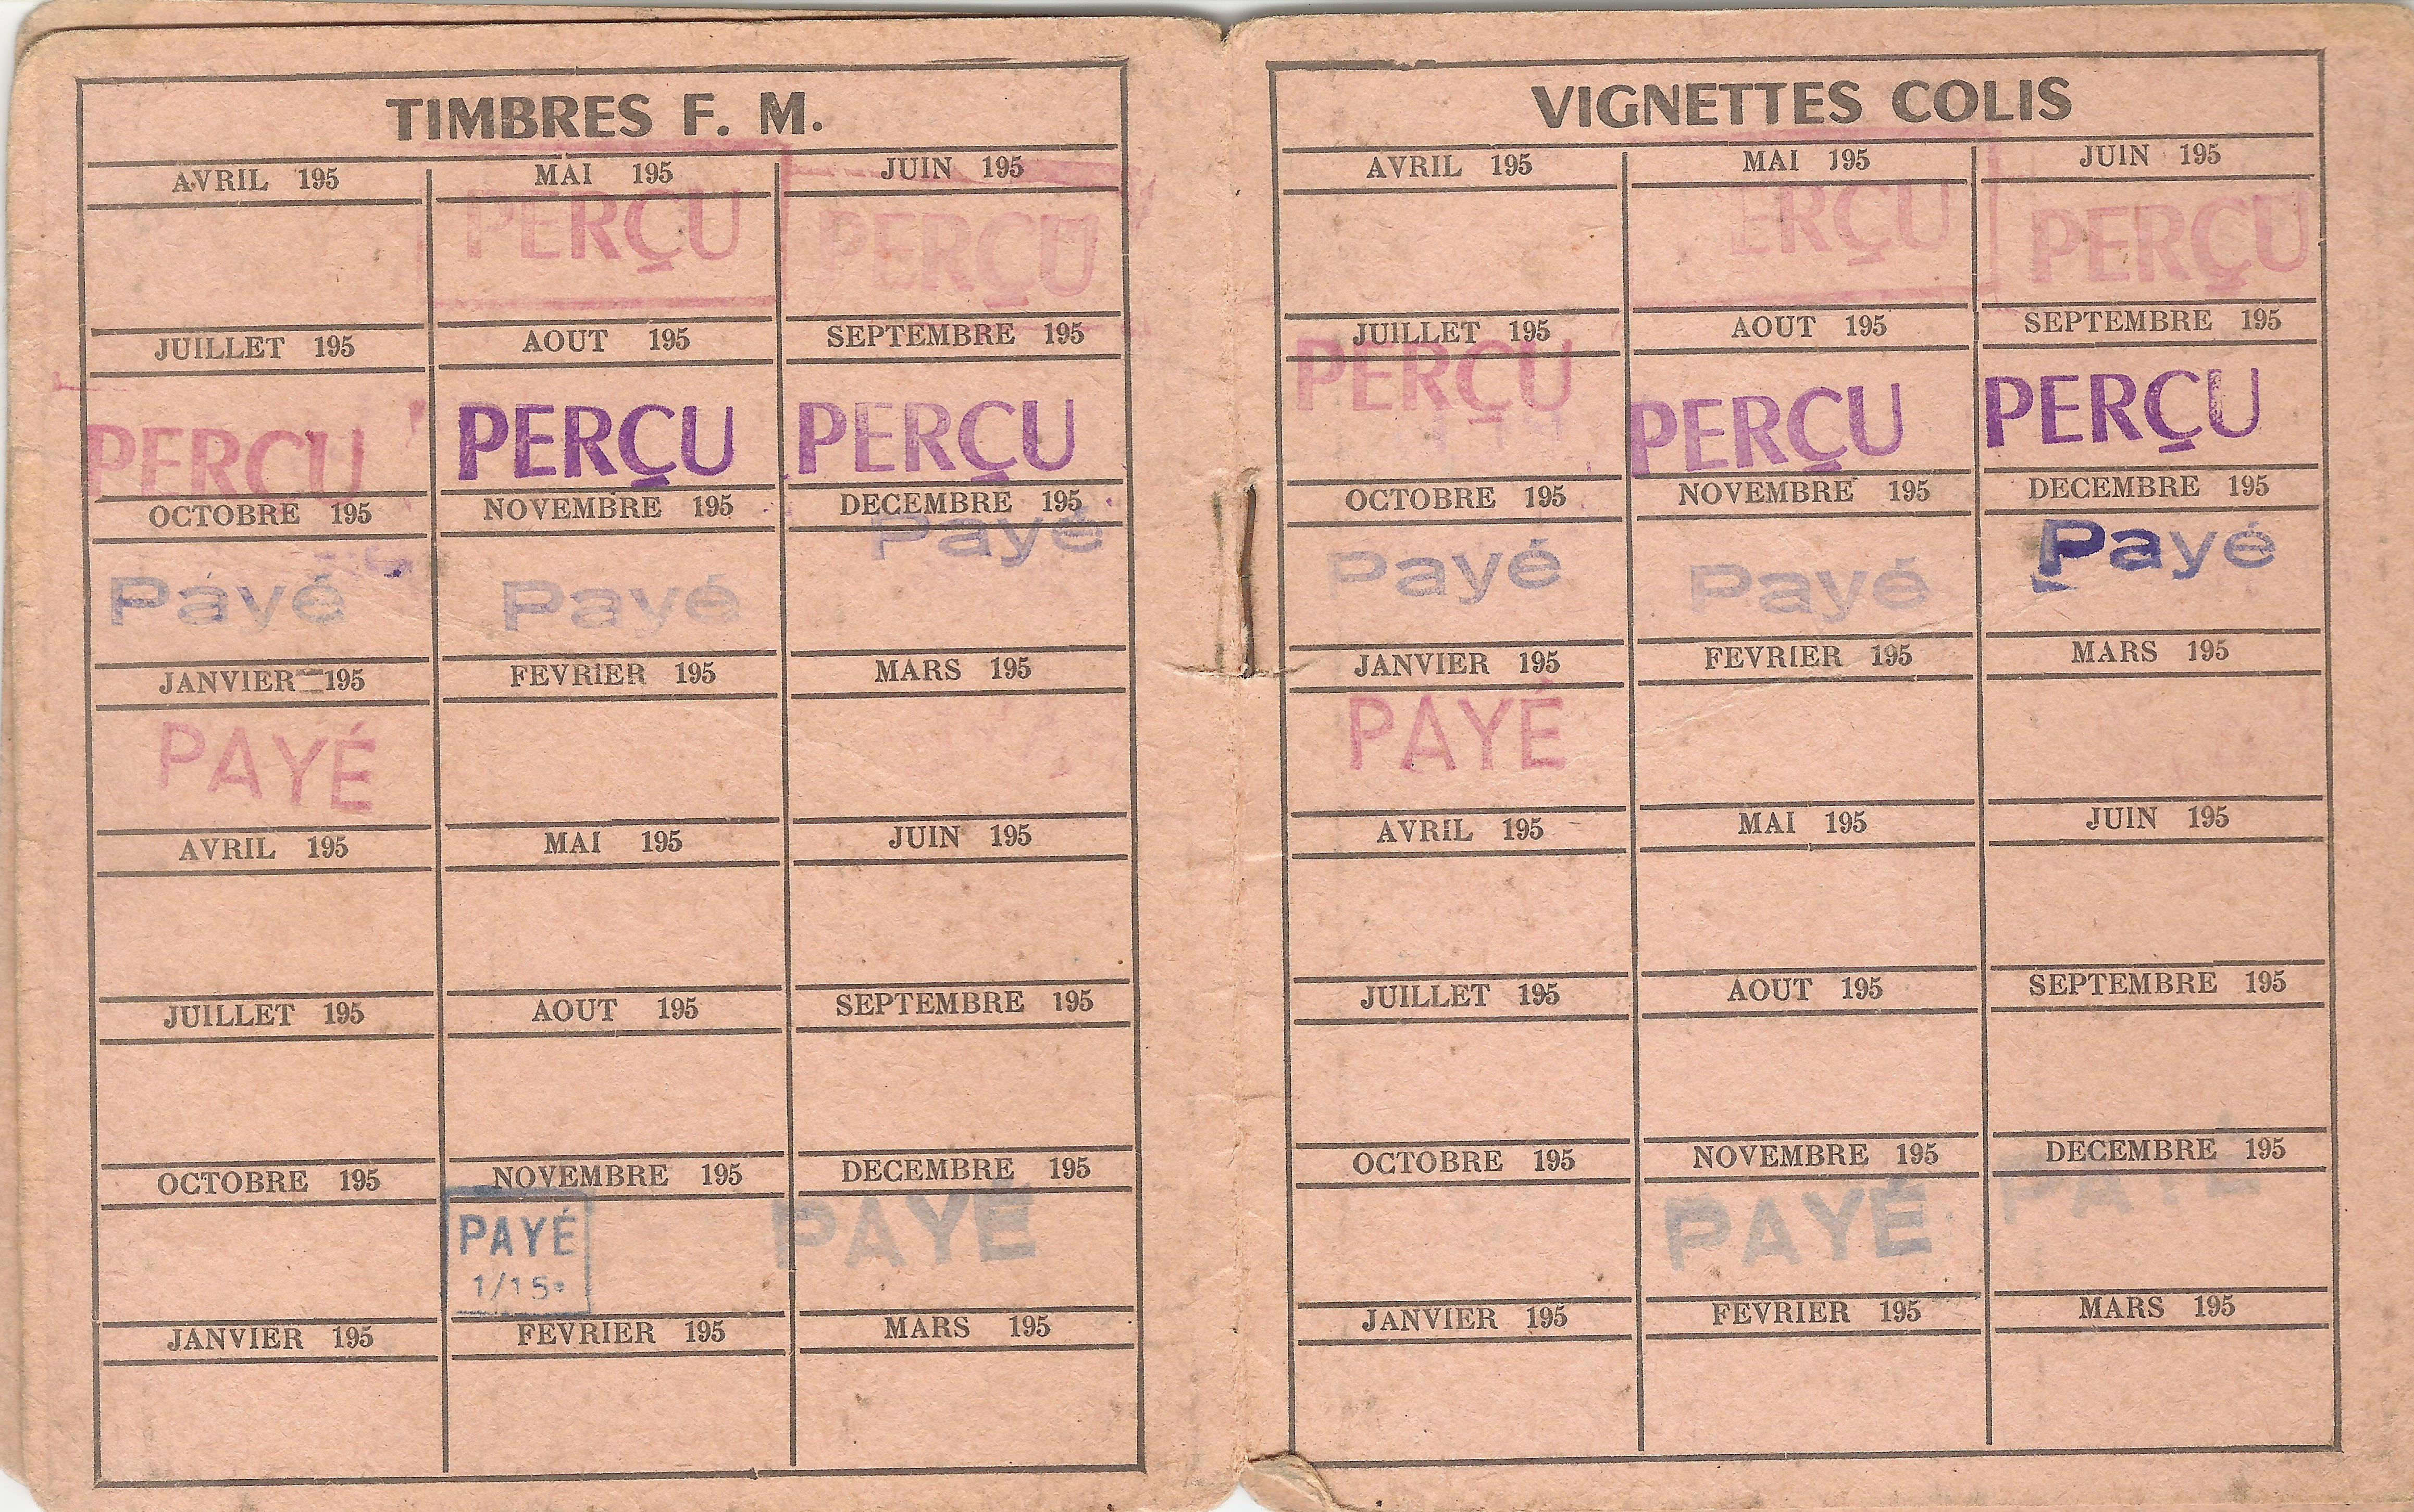 TIMBRES F. M.
AVRIL 195 MAI 195 JUIN 195
PERÇU PERÇU
JUILLET 195 AOUT 195 SEPTEMBRE 195
PERÇU PERÇU PERÇU
OCTOBRE 195 NOVEMBRE 195 DECEMBRE 195
Payé Payé Payé
JANVIER 195 FEVRIER 195 MARS 195
PAYÉ
AVRIL 195 MAI 195 JUIN 195
JUILLET 195 AOUT 195 SEPTEMBRE 195
OCTOBRE 195 NOVEMBRE 195 DECEMBRE 195
PAYÉ PAYÉ
1/15
JANVIER 195 FEVRIER 195 MARS 195
VIGNETTES COLIS
AVRIL 195 MAI 195 JUIN 195
PERÇU PERÇU
JUILLET 195 AOUT 195 SEPTEMBRE 195
PERÇU PERÇU PERÇU
OCTOBRE 195 NOVEMBRE 195 DECEMBRE 195
Payé Payé Payé
JANVIER 195 FEVRIER 195 MARS 195
PAYÉ
AVRIL 195 MAI 195 JUIN 195
JUILLET 195 AOUT 195 SEPTEMBRE 195
OCTOBRE 195 NOVEMBRE 195 DECEMBRE 195
PAYÉ PAYÉ
JANVIER 195 FEVRIER 195 MARS 195